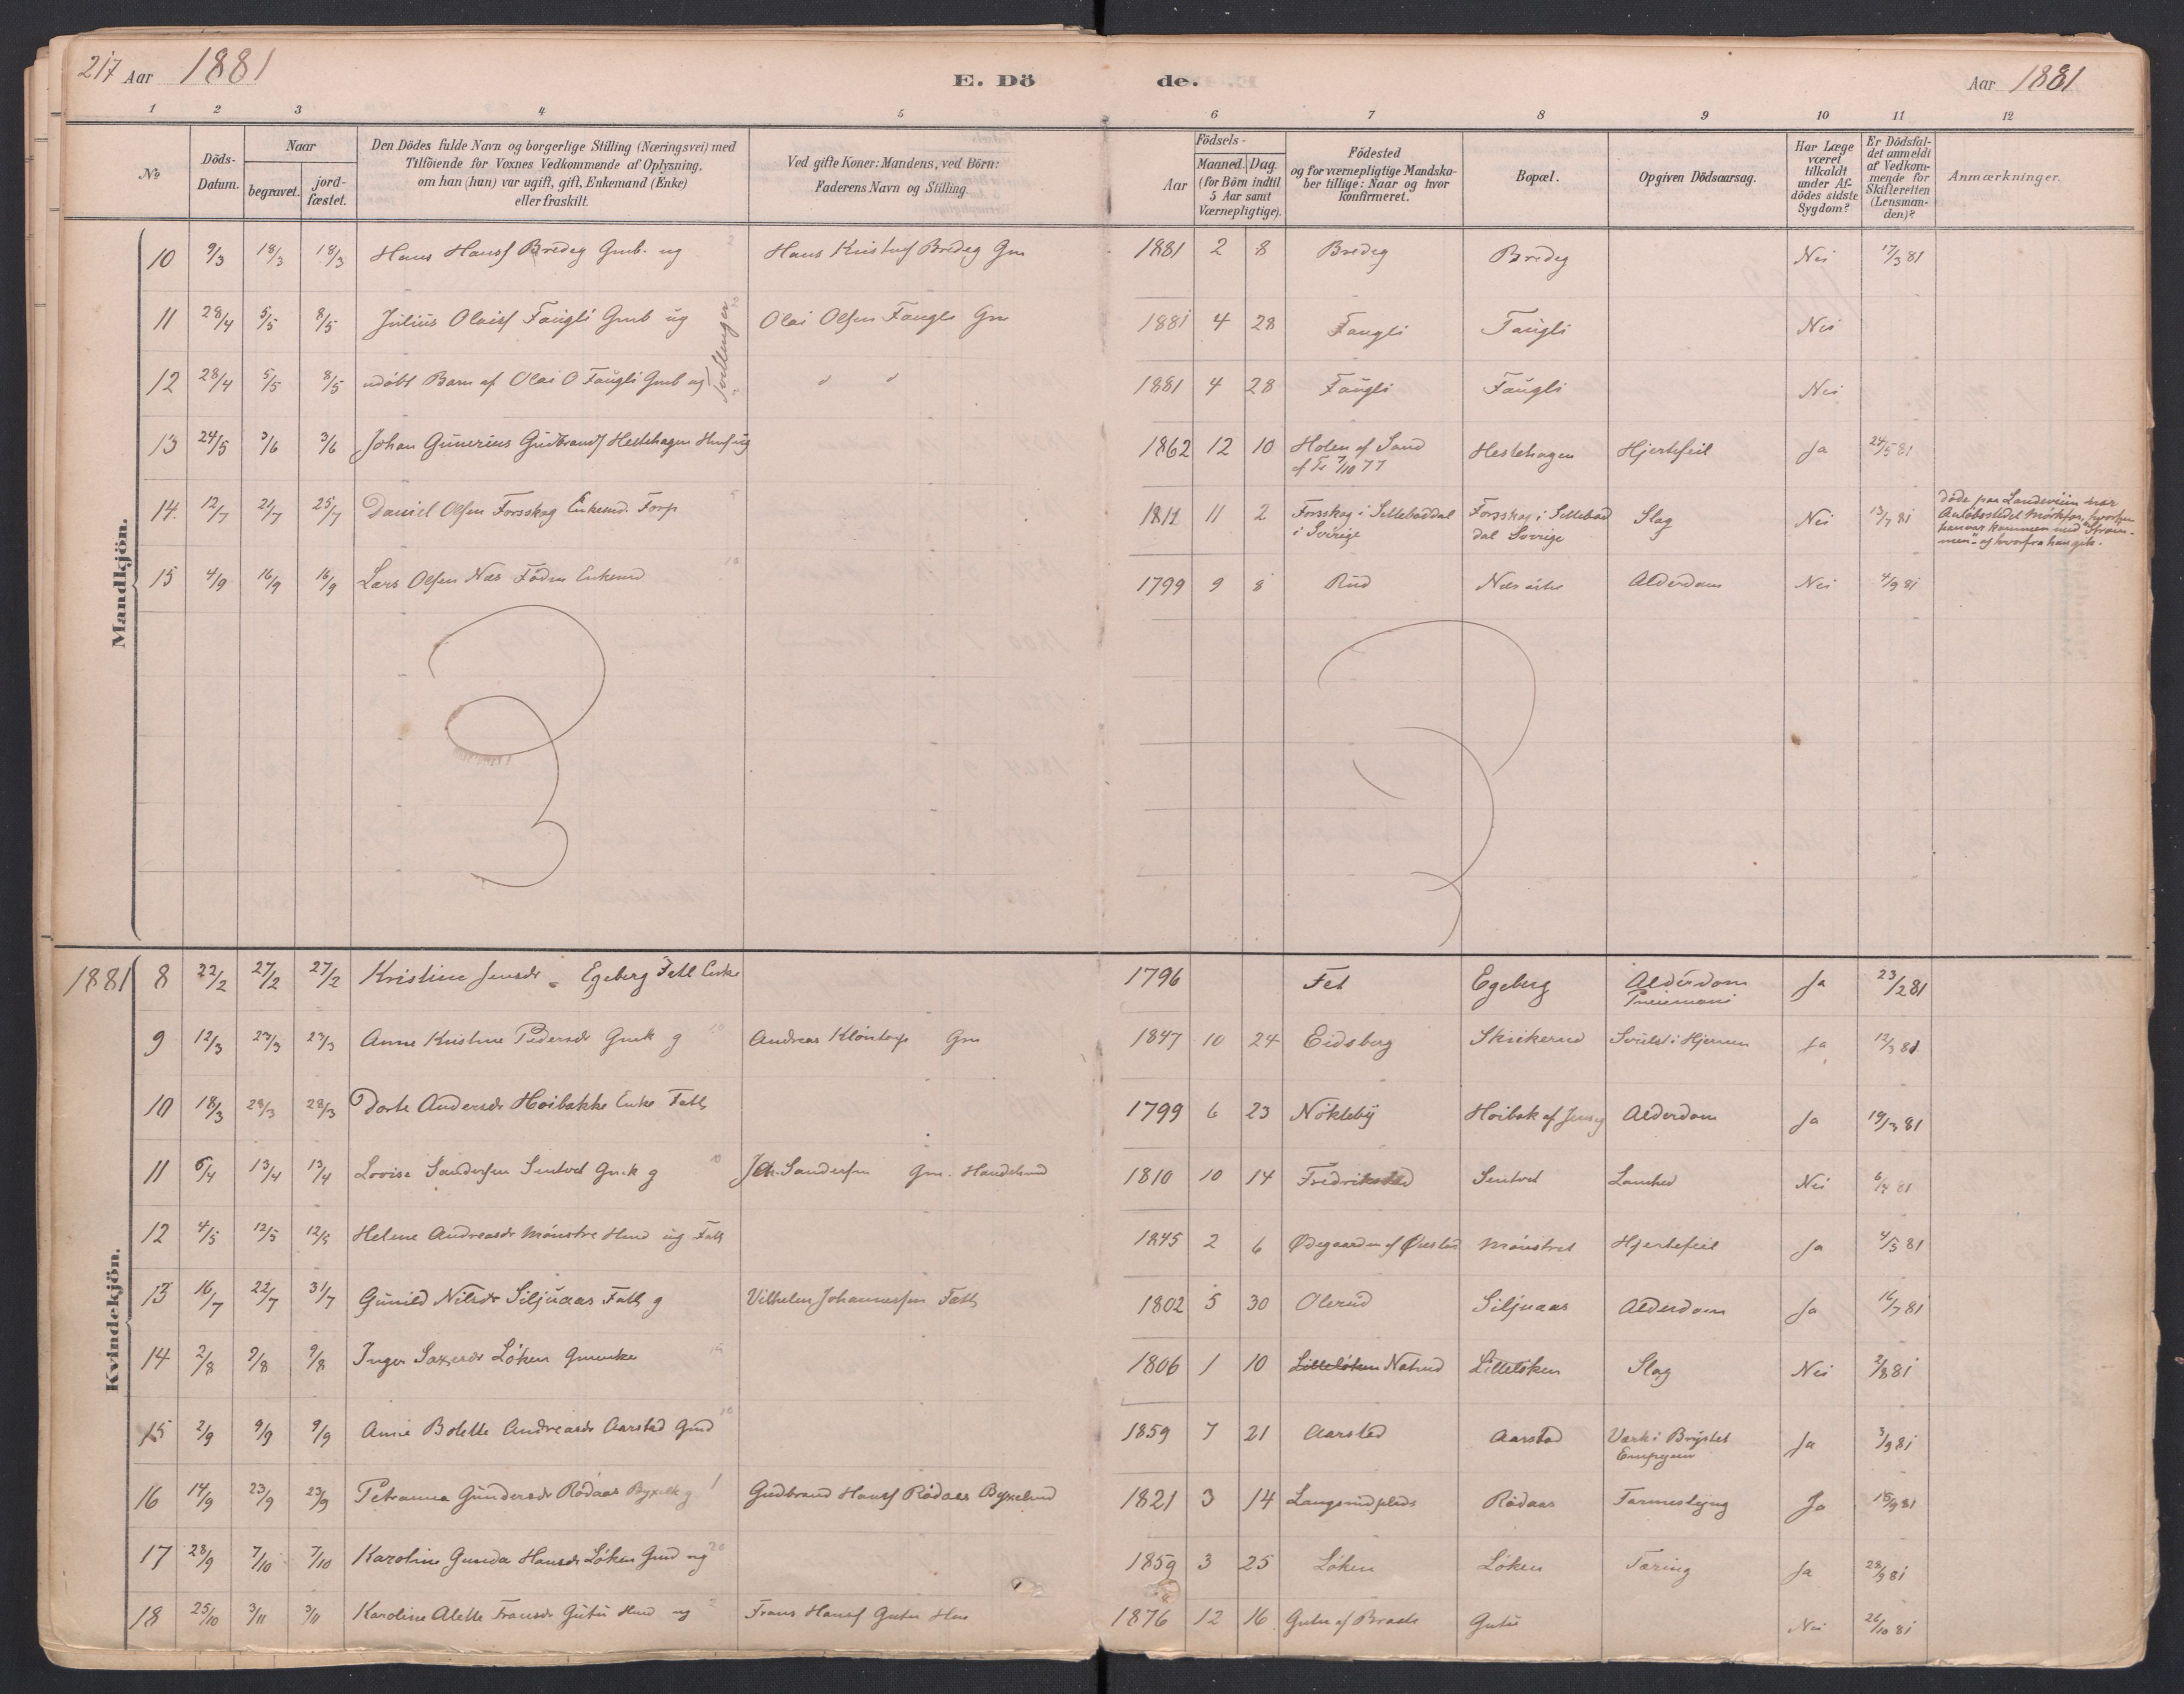 217 Aar 1881 E. Dö de. Aar 1881
1 2 3 4 5 6 7 8 9 10 11 12
No
Döds-Datum.
Naar
begravet.
jord-fæstet.
Den Dödes fulde Navn og borgerlige Stilling (Næringsvei) med
Tilföiende for Voxnes Vedkommende af Oplysning,
om han (hun) var ugift, gift, Enkemand (Enke)
eller fraskilt.
Ved gifte Koner: Mandens, ved Börn:
Faderens Navn og Stilling.
Födsels-
Aar
Maaned. Dag.
(for Börn indtil
5 Aar samt
Værnepligtige).
Födested
og for værnepligtige Mandska-
ber tillige: Naar og hvor
konfirmeret.
Bopæl.
Opgiven Dödsaarsag.
Har Læge
været
tilkaldt
under Af-
dödes sidste
Sygdom?
Er Dödsfal-
det anmeldt
af Vedkom-
mende for
Skifteretten
(Lensman-
den)?
Anmærkninger.
Mandkjön.
10 9/3 18/3 18/3 Hans Hansf Bredeg Gmb. ug Hans Kristuf Bredeg Gm 1881 2 8 Bredeg Bredeg Nei 17/3 81
11 28/4 5/5 8/5 Julius Olaisf Faugli Gmb ug Olai Olsen Faugli Gm 1881 4 28 Faugli Faugli Nei
Tvillinger
12 28/4 5/5 8/5 udöbt Barn af Olai O Faugli Gmb ug " " 1881 4 28 Faugli Faugli Nei
13 24/5 3/6 3/6 Johan Gunerius Gudbrandf Hestehagen Husf ug 1862 12 10 Holen af Sand
7/10 77 Hestehagen Hjertefeil Ja 24/5 81
14. 12/7 21/7 25/7 Daniel Olsen Forsskog Enkemd. Forp 1812 11 2 Forsskog i Sillebaddal
i Sverige Forsskog i Sillebad
dal Sverige Slag Nei 13/7 81 döde paa Landeveien nær
Anløbsstedet Mörkfos, hvortil
han var kommen med "Ström-
men" og hvorfra han gik.
15 4/9 16/9 16/9 Lars Olsen Næs Föderm Enkemd 1799 9 8 Rud Næs Alderdom Nei 4/9 81
Kvindekjön.
1881 8 22/2 27/2 27/2 Kristine Jensdr Egeberg Fatl Enke 1796 Fet Egeberg Alderdom
Ja 23/2 81
9 12/3 23/3 23/3 Anne Kristine Pedersdr Gmk g Andreas Gm 1847 10 24 Eidsberg Skiekerud Svulst i Hjernen Ja 12/3 81
10 18/3 28/3 28/3 Dorte Andersdr Höibakke Enke Fatl 1799 6 23 Nökleby Höibak af Alderdom Ja 19/3 81
11 5/4 13/4 13/4 Lovise Sandersen Sentvet Gmk g Joh. Sandersen Gm. Handelsmd 1810 10 14 Fredrikstad Sentvet Lamhed Nei 6/4 81
12 4/5 12/5 12/5 Helene Andreasdr Mönstre Husd ug Fatl 1845 2 6 Ødegaarden af Mönstret Hjertefeil Ja 4/5 81
13 16/7 22/7 31/7 Gunild Nilsdr Siljuaas Fatl g Vilhelm Johannesen Fatl 1802 5 30 Olerud Siljuaas Alderdom Ja 16/7 81
14 2/8 9/8 9/8 Inger Saxesdr Löken Gmenke 1806 1 10 Lilleløken Natrud Lilleløken Slag Nei 2/8 81
15 2/9 9/9 9/9 Anne Bolette Andreasdr Aarstad Gmd 1859 7 21 Aarstad Aarstad Værk i Brystet
Ja 3/9 81
16 14/9 23/9 23/9 Petranna Gundersdr Rödaas Byxelk g Gudbrand Hansf Rödaas Byxelmd 1821 3 14 Langerud Rödaas Tarmeslyng Ja 15/9 81
17 28/9 7/10 7/10 Karoline Gunda Hansdr Löken Gmd ug 1859 3 25 Löken Löken Tæring Ja 28/9 81
18 25/10 3/11 3/11 Karoline Alette Fransdr Gutu Husd ug Frans Hansf Gutu Hus 1876 12 16 Gutu af Braate Gutu Nei 26/10 81